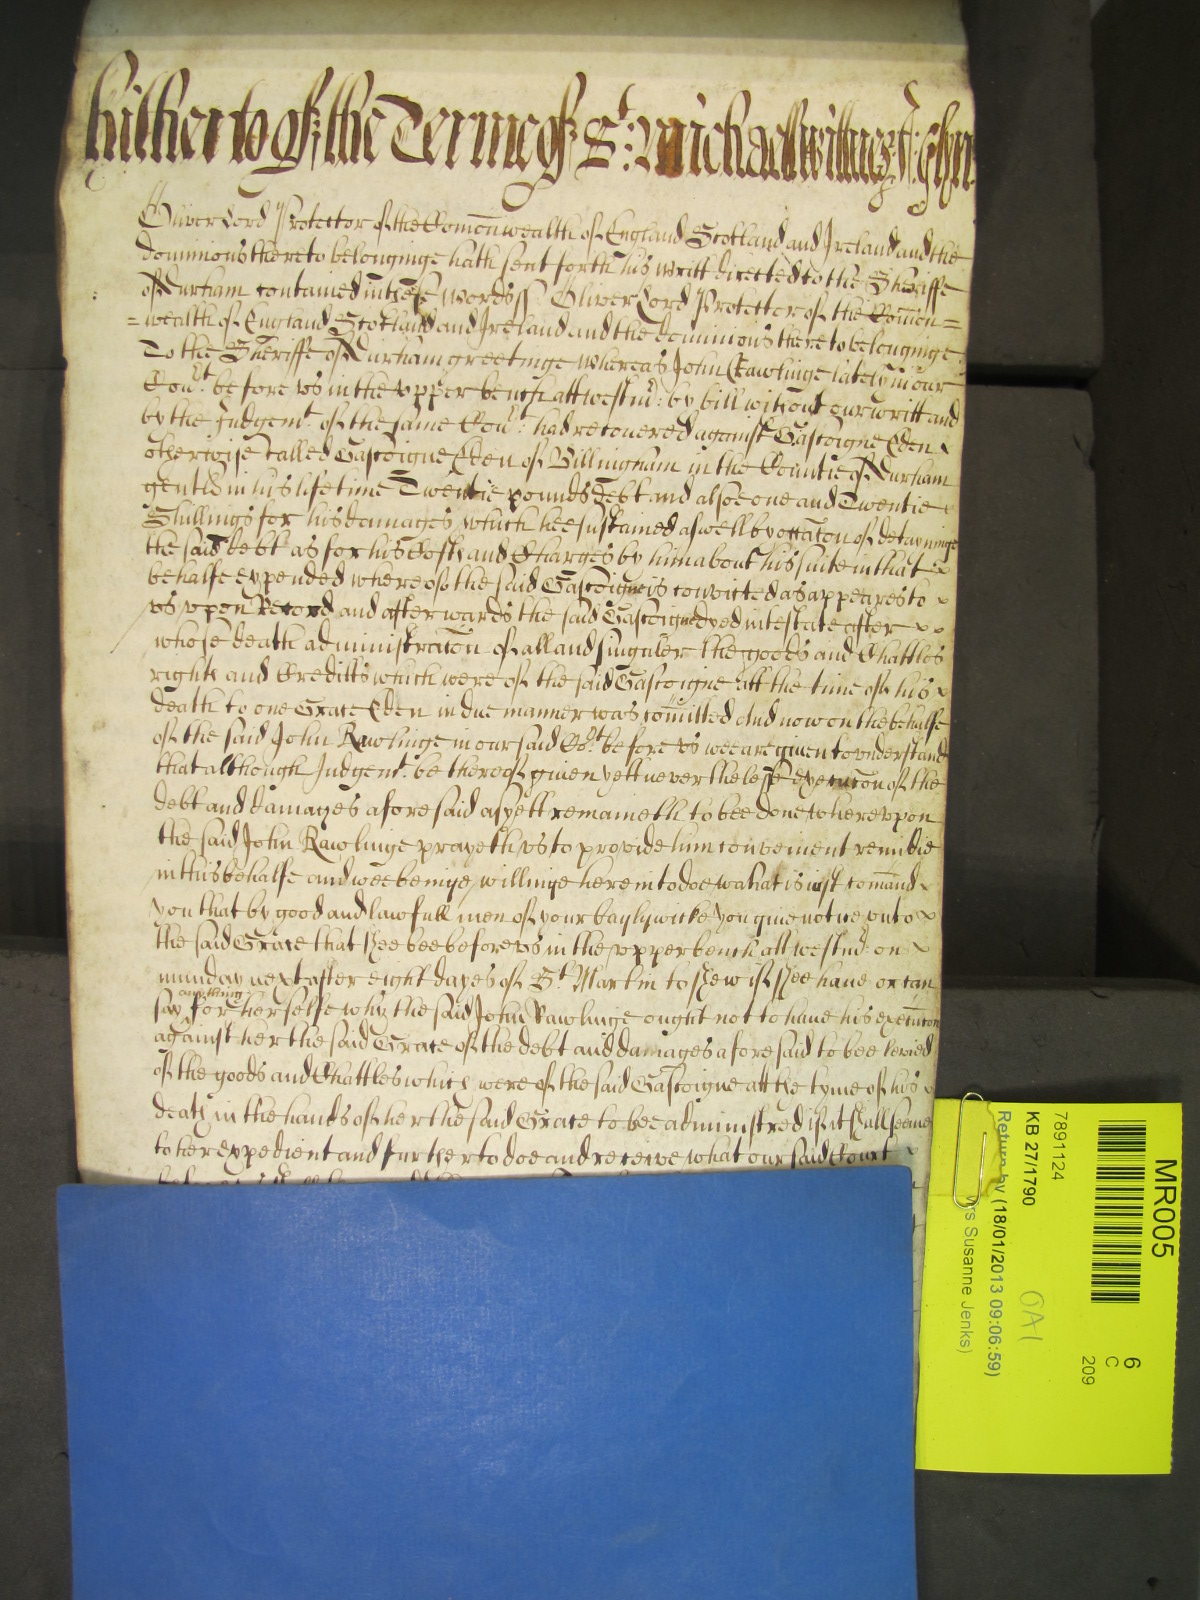 hitherto of the Terme of St: Michaell willmes: ss: Chr
Oliver Lord Protector of the Comonwealth of England Scotland and Ireland and the
dominions thereto belonginge hath sent forth his writt directed to the Sheriffe
of Durham contained in these words ss Oliver Lord Protector of the Comon=
=wealth of England Scotland and Ireland and the dominions thereto belonginge
To the Sheriffe of Durham greetinge whereas John Rawlinge lately in our
Cort before vs in the vpper bench att westmr: by bill without our writt and
by the Judgemt: of the same Cort: had recouered against Gascoigne Eden
otherwise called Gascoigne Eden of Billingham in the Countie of Durham
gentld in his life time Twentie pounds debt and alsoe one and Twentie
Shillings for his damages which hee sustained aswell by occation of detayninge
the said debt as for his Costs and Charges by him about his suite in that
behalfe expended whereof the said Gascoigne is convicted as appeares to
vs vpon Record and afterwards the said Gascoigne dyed intestate after
whose death administration of all and singuler the goods and Chattles
rights and Creditts which were of the said Gascoigne att the time of his
death to one Grace Eden in due manner was comitted And now on the behalfe
of the said John Rawlinge in our said Cort before vs wee are given to vnderstand
that although Judgemt: be thereof given yett neverthelesse execucon of the
debt and damages aforesaid as yett remaineth to bee done whereupon
the said John Rawlinge prayeth vs to provide him convenient remidie
in this behalfe and wee beinge willinge herein to doe wahat is iust comand
you that by good and lawfull men of your baylywicke you give notice vnto
the said Grace that shee bee before vs in the vpper bench att westmr: on
munday next after eight dayes of St Martin to shew if shee haue or can
say anything for herselfe why the said John Rawlinge ought not to haue his execucon
against her the said Grace of the debt and damages aforesaid to bee levied
of the goods and Chattles which were of the said Gascoigne att the tyme of his
death in the hands of her the said Grace to bee administred if it shall seeme
to her expedient and further to doe and receive what our said Court
MR005
6
C
209
7891124
KB 27/1790
OA1
Return by (18/01/2013 09:06:59)
Mrs Susanne Jenks)